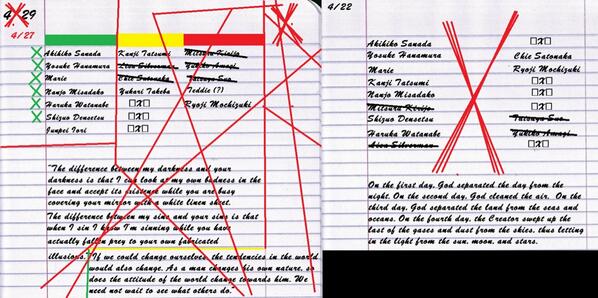 4/29
4/27
Akihiko Sanada Kanji Tatsumi Mitsuru Kirijo
Yosuke Hanamura Lisa Silverman Yukiko Amagi
Marie Chie Satonaka Tatsuya Suo
Nanjo Misadako Yukari Takeba Teddie (?)
Haruka Watanabe □X□ Ryoji Mochizuki
Shizuo Densetsu □X□
Junpei Iori □X□
"The difference between my darkness and your
darkness is that I can look at my own badness in the
face and accept its existence while you are busy
covering your mirror with a white linen sheet.
The difference between my sins and your sins is that
when I sin I know I'm sinning while you have
actually fallen prey to your own fabricated
illusions."
"If we could change ourselves, the tendencies in the world
would also change. As a man changes his own nature, so
does the attitude of the world change towards him. We
need not wait to see what others do."
4/22
Akihiko Sanada □X□
Yosuke Hanamura Chie Satonaka
Marie Ryoji Mochizuki
Kanji Tatsumi □X□
Nanjo Misadako □X□
Mitsuru Kirijo □X□
Shizuo Densetsu Tatsuya Suo
Haruka Watanabe Yukiko Amagi
Lisa Silverman □X□
On the first day, God separated the day from the
night. On the second day, God cleaned the air. On the
third day, God separated the land from the seas and
oceans. On the fourth day, the Creator swept up the
last of the gases and dust from the skies, thus letting
in the light from the sun, moon, and stars.